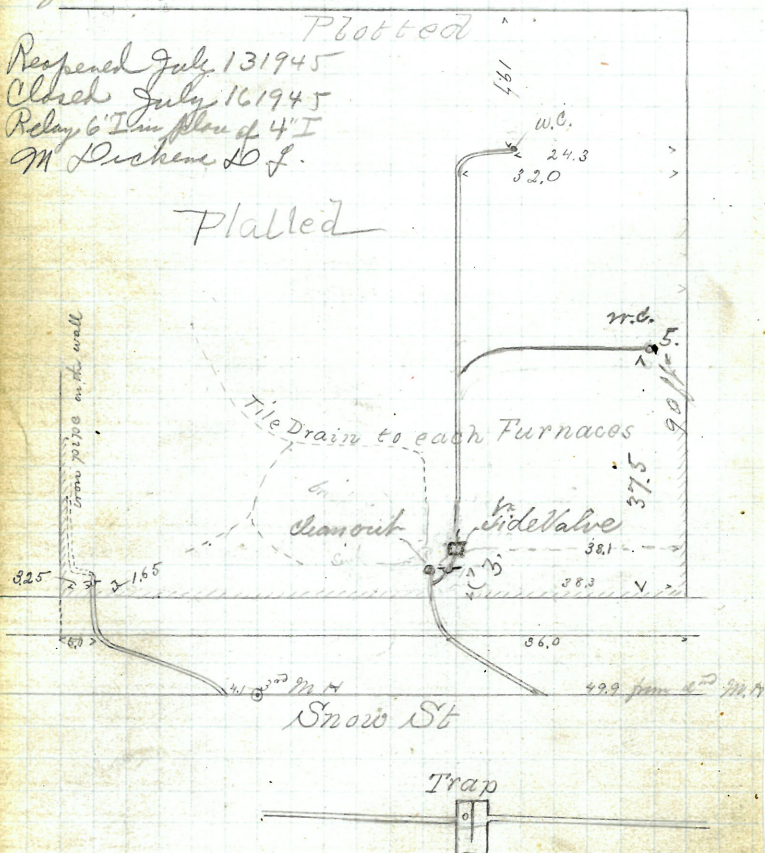 Plotted
Reopened July 13 1945
Closed July 16 1945
Relay 6" I in place of 4" I
M Dickens D.J.
491
W.C.
24.3
32.0
Platted
W.C.
5.
90 ft
iron pipe on the wall
Tile Drain to each Furnaces
37.5
Cleanout
Side Valve
38.1
3.25
1.65
3
38.3
6.0
36.0
4.1
2nd M H
49.9 from 2nd M.H
Snow St
Trap